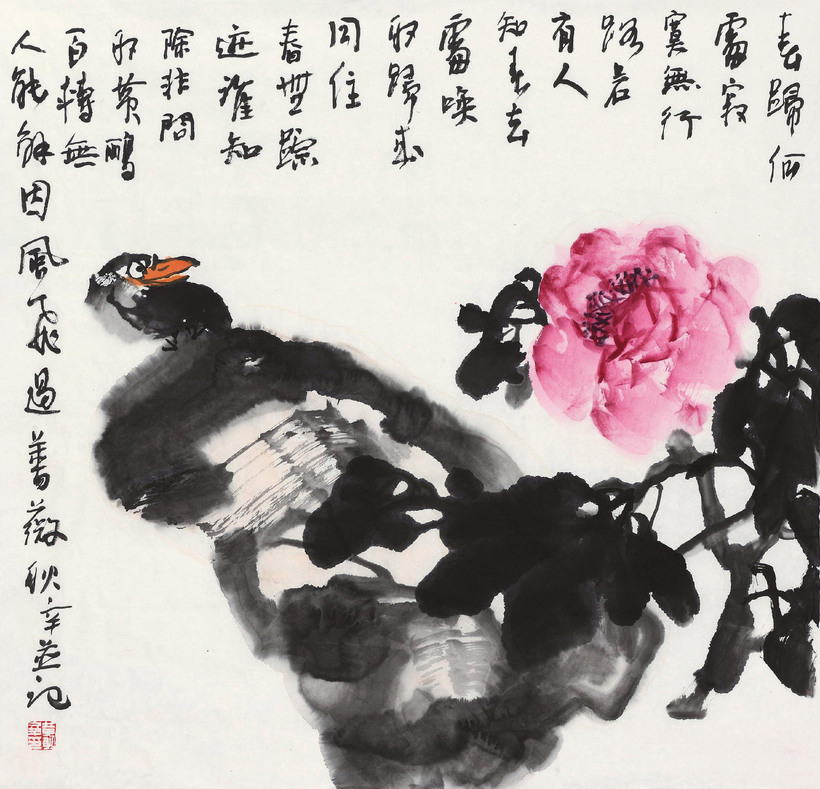 春歸何
處寂
寞無行
路若
有人
知春去
處喚
取歸來
同住
春無踪
迹誰知
除非問
取黄鸝
百轉無
人能解因風飛過薔薇辛並记